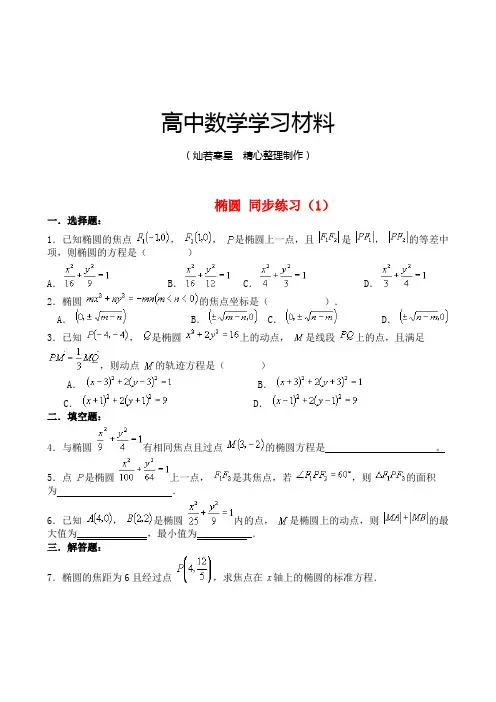 高中数学学习材料
（灿若寒星 精心整理制作）
椭圆 同步练习（1）
一．选择题：
1．已知椭圆的焦点 F₁(-1,0)， F₂(1,0)， P是椭圆上一点，且 |F₁F₂| 是 |PF₁|， |PF₂| 的等差中
项，则椭圆的方程是（ ）
A． x²/16 + y²/9 = 1 B． x²/16 + y²/12 = 1 C． x²/4 + y²/3 = 1 D． x²/3 + y²/4 = 1
2．椭圆 mx² + ny² = -mn(m < n < 0) 的焦点坐标是（ ）．
A． (0, ±√(m-n)) B． (±√(m-n), 0) C． (0, ±√(n-m)) D． (±√(n-m), 0)
3．已知 P(-4,-4)， Q是椭圆 x² + 2y² = 16 上的动点， M 是线段 PQ 上的点，且满足
PM = 1/3 MQ ，则动点 M 的轨迹方程是（ ）
A． (x-3)² + 2(y-3)² = 1 B． (x+3)² + 2(y+3)² = 1
C． (x+1)² + 2(y+1)² = 9 D． (x-1)² + 2(y-1)² = 9
二．填空题：
4．与椭圆 x²/9 + y²/4 = 1 有相同焦点且过点 M(3,-2) 的椭圆方程是 。
5．点 P 是椭圆 x²/100 + y²/64 = 1 上一点， F₁F₂ 是其焦点，若 ∠F₁PF₂ = 60°，则 △F₁PF₂ 的面积
为 ．
6．已知 A(4,0)， B(2,2) 是椭圆 x²/25 + y²/9 = 1 内的点， M 是椭圆上的动点，则 |MA| + |MB| 的最
大值为 ，最小值为 ．
三．解答题：
7．椭圆的焦距为6且经过点 P(4, 12/5)，求焦点在 x 轴上的椭圆的标准方程．